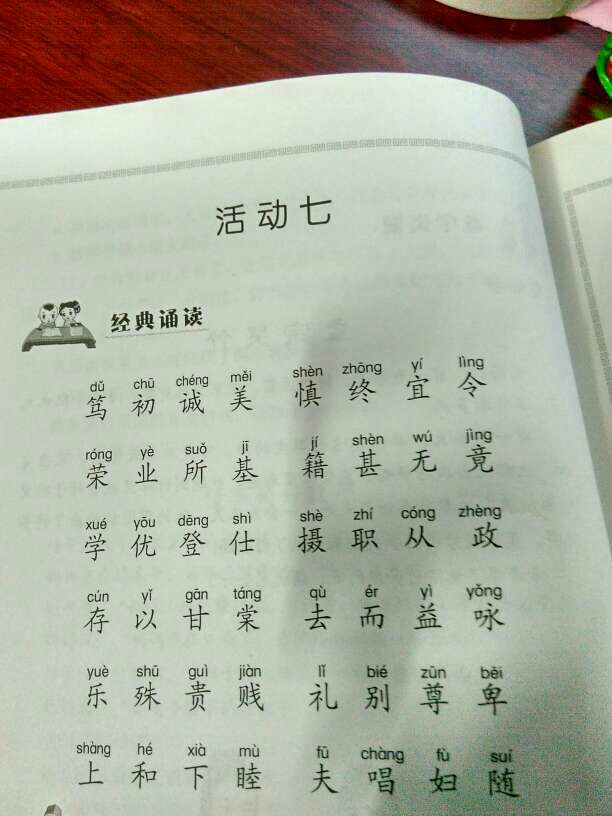 活动七
经典诵读
dǔ chū chéng měi shèn zhōng yí lìng
笃 初 诚 美 慎 终 宜 令
róng yè suǒ jī jí shèn wú jìng
荣 业 所 基 籍 甚 无 竟
xué yōu dēng shì shè zhí cóng zhèng
学 优 登 仕 摄 职 从 政
cún yǐ gān táng qù ér yì yǒng
存 以 甘 棠 去 而 益 咏
yuè shū guì jiàn lǐ bié zūn bēi
乐 殊 贵 贱 礼 别 尊 卑
shàng hé xià mù fū chàng fù suí
上 和 下 睦 夫 唱 妇 随